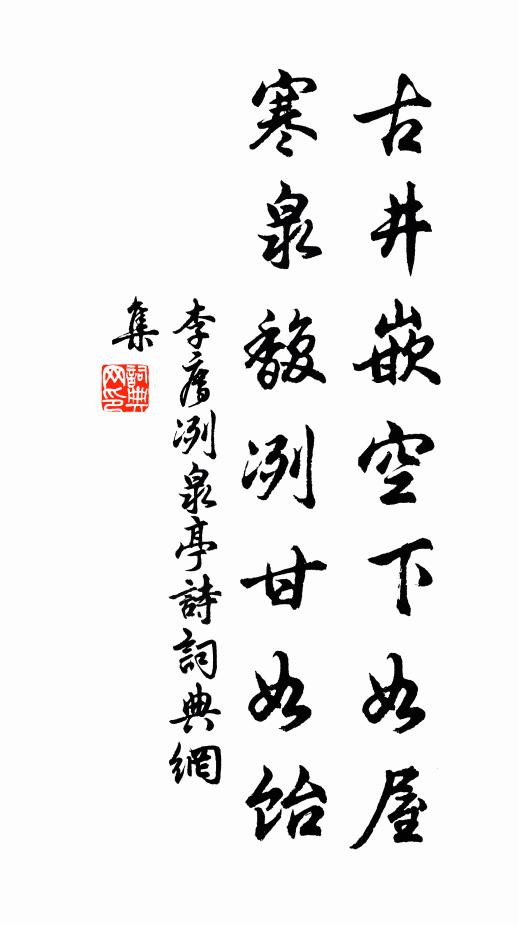 古井嵌空下如屋
寒泉馥冽甘如飴
李廌冽泉亭詩詞典網
集
詞典
网印